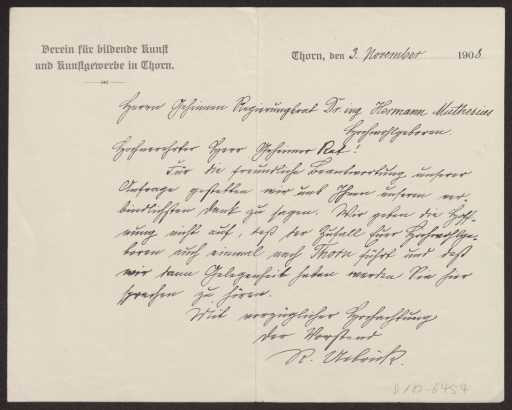 Verein für bildende Kunst
und Kunstgewerbe in Thorn.
Thorn, den 3. November 1908.
Herrn Geheimen Regierungsrat Dr. ing Hermann Muthesius
Hochwohlgeboren.
Hochverehrter Herr Geheimer Rat!
Für die freundliche Beantwortung unserer
Anfrage gestatten wir uns Ihnen unsern ver-
bindlichsten Dank zu sagen. Wir geben die Hoff-
nung nicht auf, daß der Zufall Euer Hochwohlge-
boren auch einmal nach Thorn führt und daß
wir dann Gelegenheit haben werden Sie hier
sprechen zu hören.
Mit vorzüglicher Hochachtung
Der Vorstand
R. Uebrick.
D 102-6454